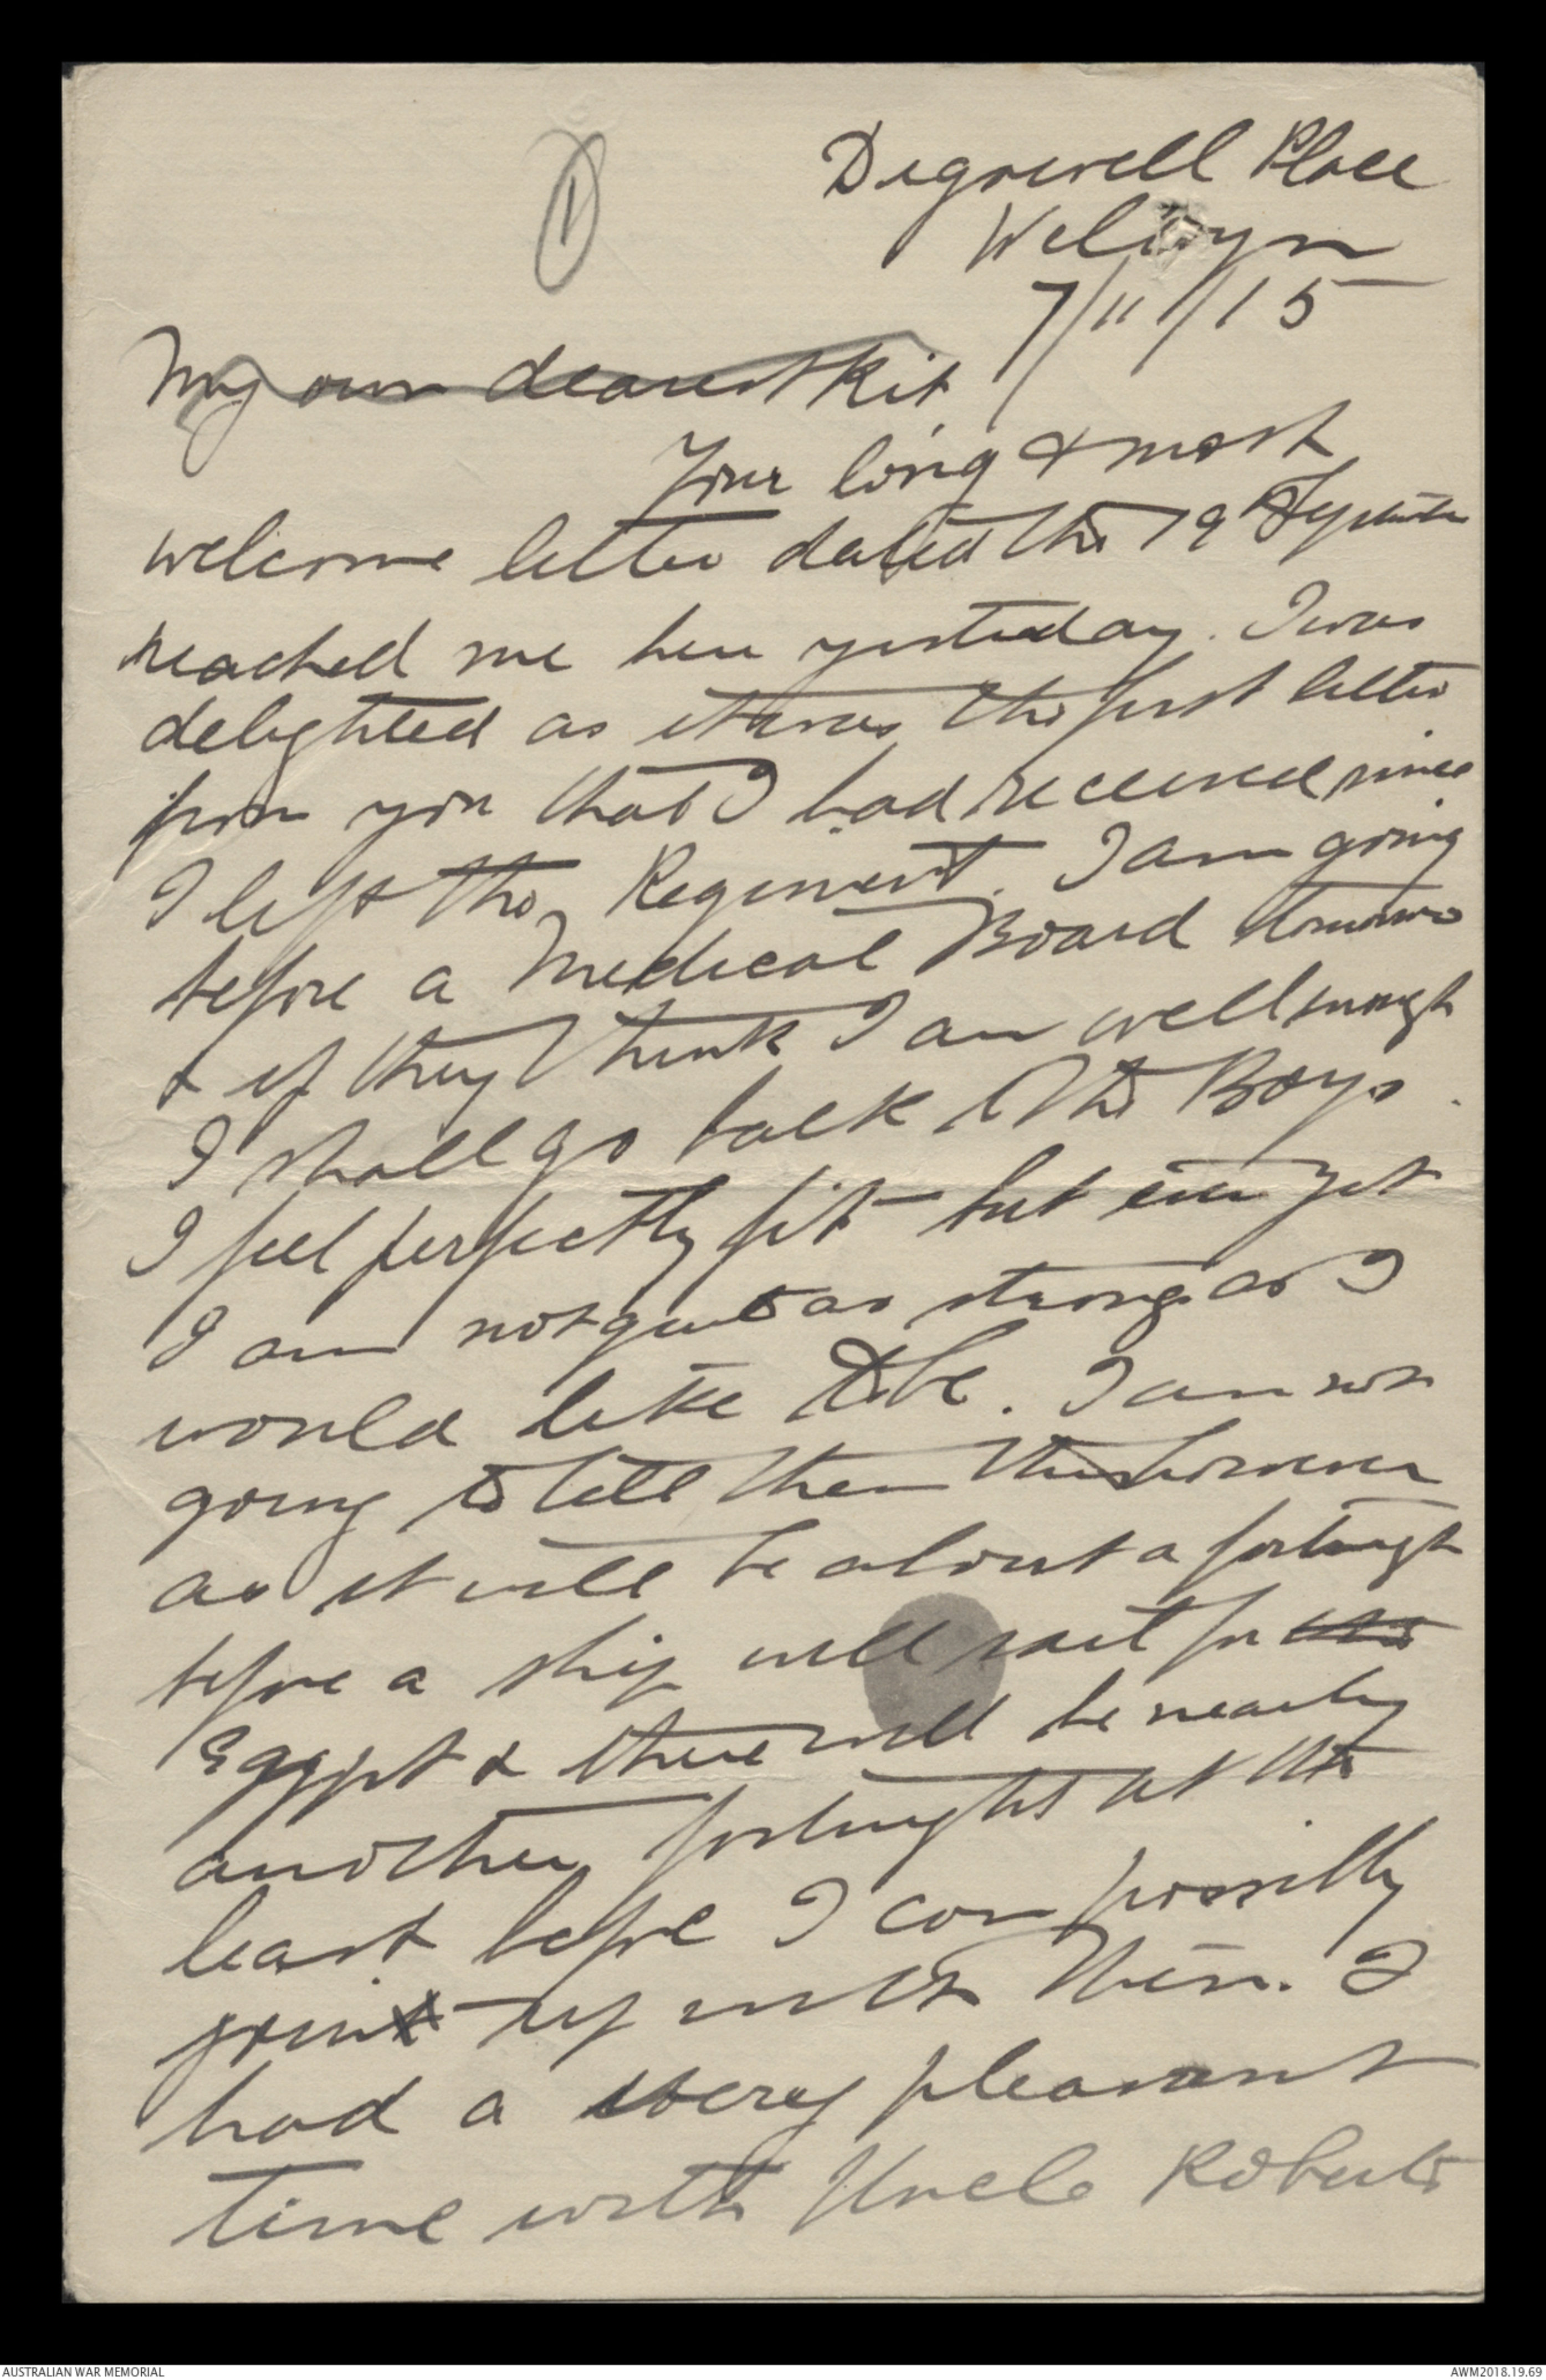 1
Digswell Place
Welwyn
7/11/15
My own dearest Kit,
Your long & most
welcome letter dated the 19th September
reached me here yesterday. I was
delighted as it was the first letter
from you that I had received since
I left the Regiment. I am going
before a Medical Board tomorrow
& if they think I am well enough
I shall go back to the Boys.
I feel perfectly fit but even yet
I am not quite as strong as I
would like to be. I am not
going to tell them this however
as it will be about a fortnight
before a ship will sail for
Egypt & there will be nearly
another fortnight at the
least before I can possibly
join up with them. I
had a very pleasant
time with Uncle Roberts
AUSTRALIAN WAR MEMORIAL
AWM2018.19.69